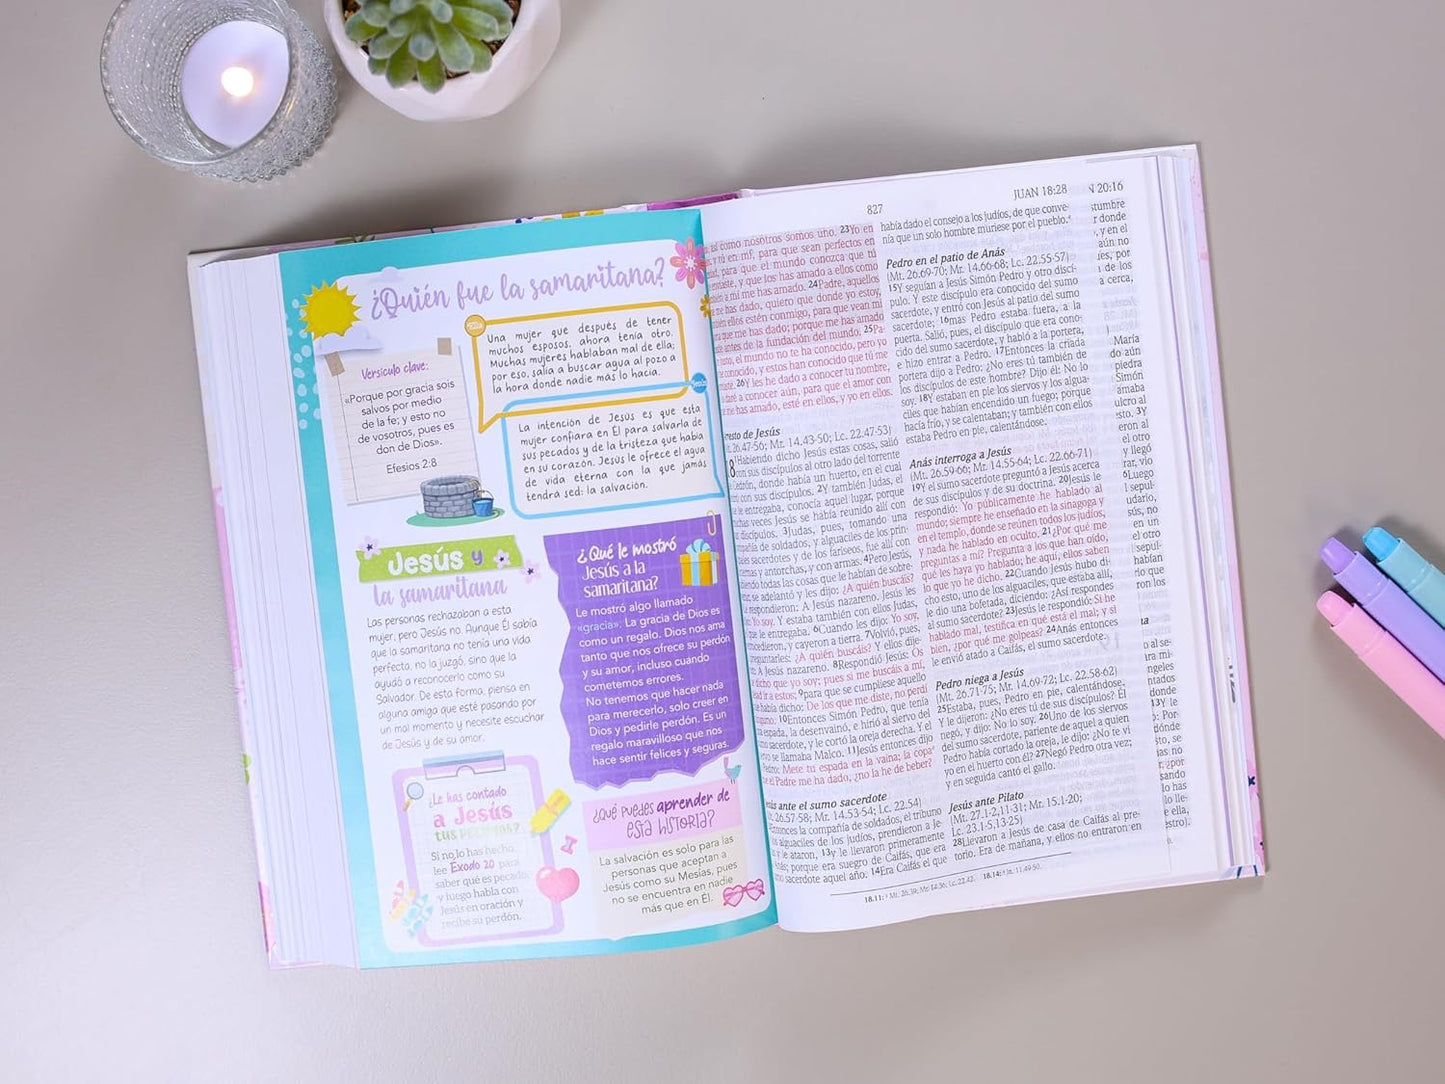 ¿Quién fue la samaritana?
Versículo clave:
«Porque por gracia sois
salvos por medio
de la fe; y esto no
de vosotros, pues es
don de Dios».
Efesios 2:8
Una mujer que después de tener
muchos esposos, ahora tenía otro.
Muchas mujeres hablaban mal de ella;
por eso, salía a buscar agua al pozo a
la hora donde nadie más lo hacía.
La intención de Jesús es que esta
mujer confiara en Él para salvarla de
sus pecados y de la tristeza que había
en su corazón. Jesús le ofrece el agua
de vida eterna con la que jamás
tendrá sed: la salvación.
Jesús y
la samaritana
Las personas rechazaban a esta
mujer, pero Jesús no. Aunque Él sabía
que la samaritana no tenía una vida
perfecta, no la juzgó, sino que la
ayudó a reconocerlo como su
Salvador. De esta forma, piensa en
alguna amiga que esté pasando por
un mal momento y necesite escuchar
de Jesús y de su amor.
¿Qué le mostró
Jesús a la
samaritana?
Le mostró algo llamado
«gracia». La gracia de Dios es
como un regalo. Dios nos ama
tanto que nos ofrece su perdón
y su amor, incluso cuando
cometemos errores.
No tenemos que hacer nada
para merecerlo, solo creer en
Dios y pedirle perdón. Es un
regalo maravilloso que nos
hace sentir felices y seguras.
¿Le has contado
a Jesús
tus pecados?
Si no lo has hecho,
lee Éxodo 20 para
saber qué es pecado,
y luego habla con
Jesús en oración y
recibe su perdón.
¿Qué puedes aprender de
esta historia?
La salvación es solo para las
personas que aceptan a
Jesús como su Mesías, pues
no se encuentra en nadie
más que en Él.
827
JUAN 18:28
20:16
como nosotros somos uno. 23Yo en
y tú en mí, para que sean perfectos en
para que el mundo conozca que tú
y que los has amado a ellos como
a mí me has amado. 24Padre, aquellos
me has dado, quiero que donde yo estoy,
ellos estén conmigo, para que vean mi
que me has dado; porque me has amado
antes de la fundación del mundo. 25Pa-
justo, el mundo no te ha conocido, pero yo
conocido, y estos han conocido que tú me
26Y les he dado a conocer tu nombre,
a conocer aún, para que el amor con
me has amado, esté en ellos, y yo en ellos.
de Jesús
26.47-56; Mr. 14.43-50; Lc. 22.47-53)
Habiendo dicho Jesús estas cosas, salió
con sus discípulos al otro lado del torrente
donde había un huerto, en el cual
con sus discípulos. 2Y también Judas, el
le entregaba, conocía aquel lugar, porque
veces Jesús se había reunido allí con
discípulos. 3Judas, pues, tomando una
de soldados, y alguaciles de los prin-
sacerdotes y de los fariseos, fue allí con
y antorchas, y con armas. 4Pero Jesús,
todas las cosas que le habían de sobre-
se adelantó y les dijo: ¿A quién buscáis?
respondieron: A Jesús nazareno. Jesús les
Yo soy. Y estaba también con ellos Judas,
le entregaba. 6Cuando les dijo: Yo soy,
y cayeron a tierra. 7Volvió, pues,
¿A quién buscáis? Y ellos dije-
A Jesús nazareno. 8Respondió Jesús: Os
dicho que yo soy; pues si me buscáis a mí,
ir a estos; 9para que se cumpliese aquello
había dicho: De los que me diste, no perdí
10Entonces Simón Pedro, que tenía
espada, la desenvainó, e hirió al siervo del
sacerdote, y le cortó la oreja derecha. Y el
se llamaba Malco. 11Jesús entonces dijo
Pedro: Mete tu espada en la vaina; la copa
el Padre me ha dado, ¿no la he de beber?
ante el sumo sacerdote
26.57-58; Mr. 14.53-54; Lc. 22.54)
la compañía de soldados, el tribuno
alguaciles de los judíos, prendieron a Je-
le ataron, 13y le llevaron primeramente
porque era suegro de Caifás, que era
sacerdote aquel año. 14Era Caifás el que
había dado el consejo a los judíos, de que conve-
nía que un solo hombre muriese por el pueblo.
Pedro en el patio de Anás
(Mt. 26.69-70; Mr. 14.66-68; Lc. 22.55-57)
15Y seguían a Jesús Simón Pedro y otro discí-
pulo. Y este discípulo era conocido del sumo
sacerdote, y entró con Jesús al patio del sumo
sacerdote; 16mas Pedro estaba fuera, a la
puerta. Salió, pues, el discípulo que era cono-
cido del sumo sacerdote, y habló a la portera,
e hizo entrar a Pedro. 17Entonces la criada
portera dijo a Pedro: ¿No eres tú también de
los discípulos de este hombre? Dijo él: No lo
soy. 18Y estaban en pie los siervos y los algua-
ciles que habían encendido un fuego; porque
hacía frío, y se calentaban; y también con ellos
estaba Pedro en pie, calentándose.
Anás interroga a Jesús
(Mt. 26.59-66; Mr. 14.55-64; Lc. 22.66-71)
19Y el sumo sacerdote preguntó a Jesús acerca
de sus discípulos y de su doctrina. 20Jesús le
respondió: Yo públicamente he hablado al
mundo; siempre he enseñado en la sinagoga y
en el templo, donde se reúnen todos los judíos,
y nada he hablado en oculto. 21¿Por qué me
preguntas a mí? Pregunta a los que han oído,
qué les haya yo hablado; he aquí, ellos saben
lo que yo he dicho. 22Cuando Jesús hubo di-
cho esto, uno de los alguaciles, que estaba allí,
le dio una bofetada, diciendo: ¿Así respondes
al sumo sacerdote? 23Jesús le respondió: Si he
hablado mal, testifica en qué está el mal; y si
bien, ¿por qué me golpeas? 24Anás entonces
le envió atado a Caifás, el sumo sacerdote.
Pedro niega a Jesús
(Mt. 26.71-75; Mr. 14.69-72; Lc. 22.58-62)
25Estaba, pues, Pedro en pie, calentándose.
Y le dijeron: ¿No eres tú de sus discípulos? Él
negó, y dijo: No lo soy. 26Uno de los siervos
del sumo sacerdote, pariente de aquel a quien
Pedro había cortado la oreja, le dijo: ¿No te vi
yo en el huerto con él? 27Negó Pedro otra vez;
y en seguida cantó el gallo.
Jesús ante Pilato
(Mt. 27.1-2,11-31; Mr. 15.1-20;
Lc. 23.1-5,13-25)
28Llevaron a Jesús de casa de Caifás al pre-
torio. Era de mañana, y ellos no entraron en
18.11: Mt. 26.39; Mr. 14.36; Lc. 22.42. 18.14: Jn. 11.49-50.